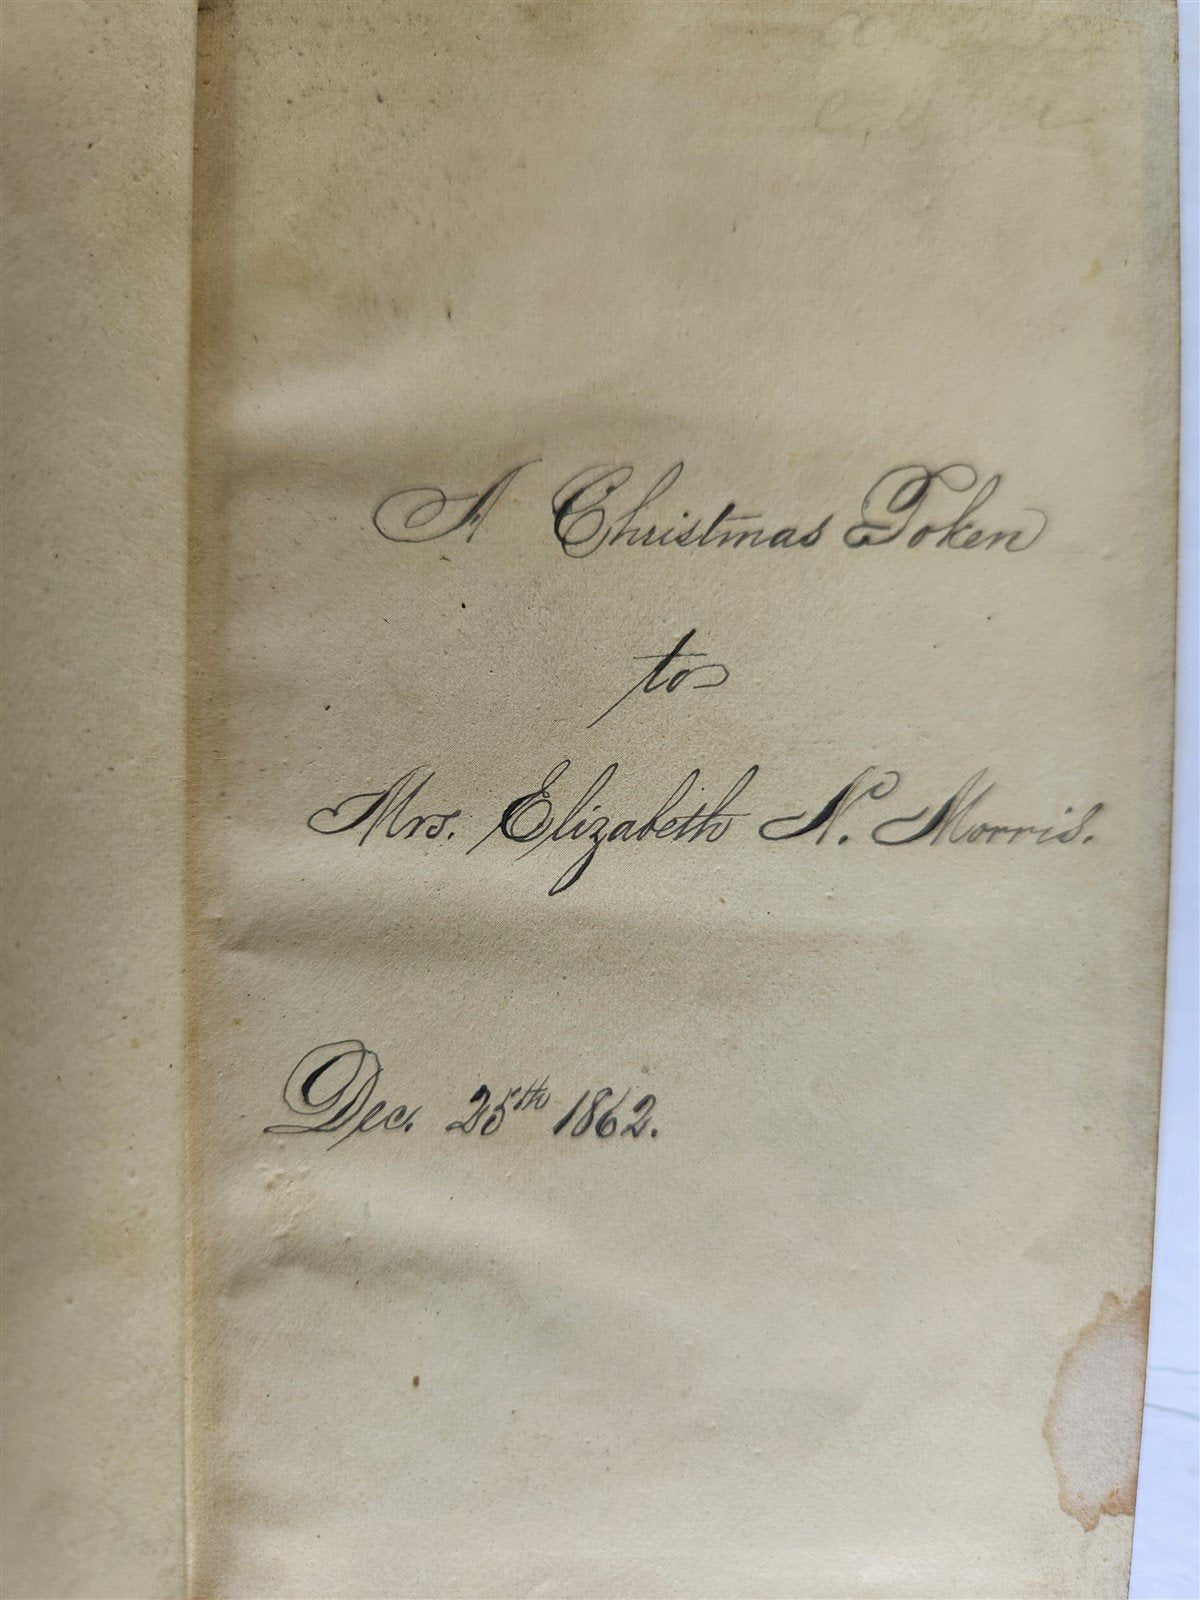 A Christmas Token
to
Mrs. Elizabeth N. Morris.
Dec. 25th 1862.